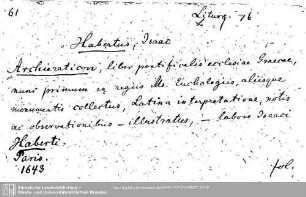 61
Liturg. 76
Habertus, Isaac
Archieraticon, liber pontificalis ecclesiae Graecae,
nunc primum ex regiis Ms. Euchologiis, aliisque
monumentis collectus, Latina interpretatione, notis
ac observationibus - illustratus, - labore Isaaci
Haberti.
Paris.
1643
fol.